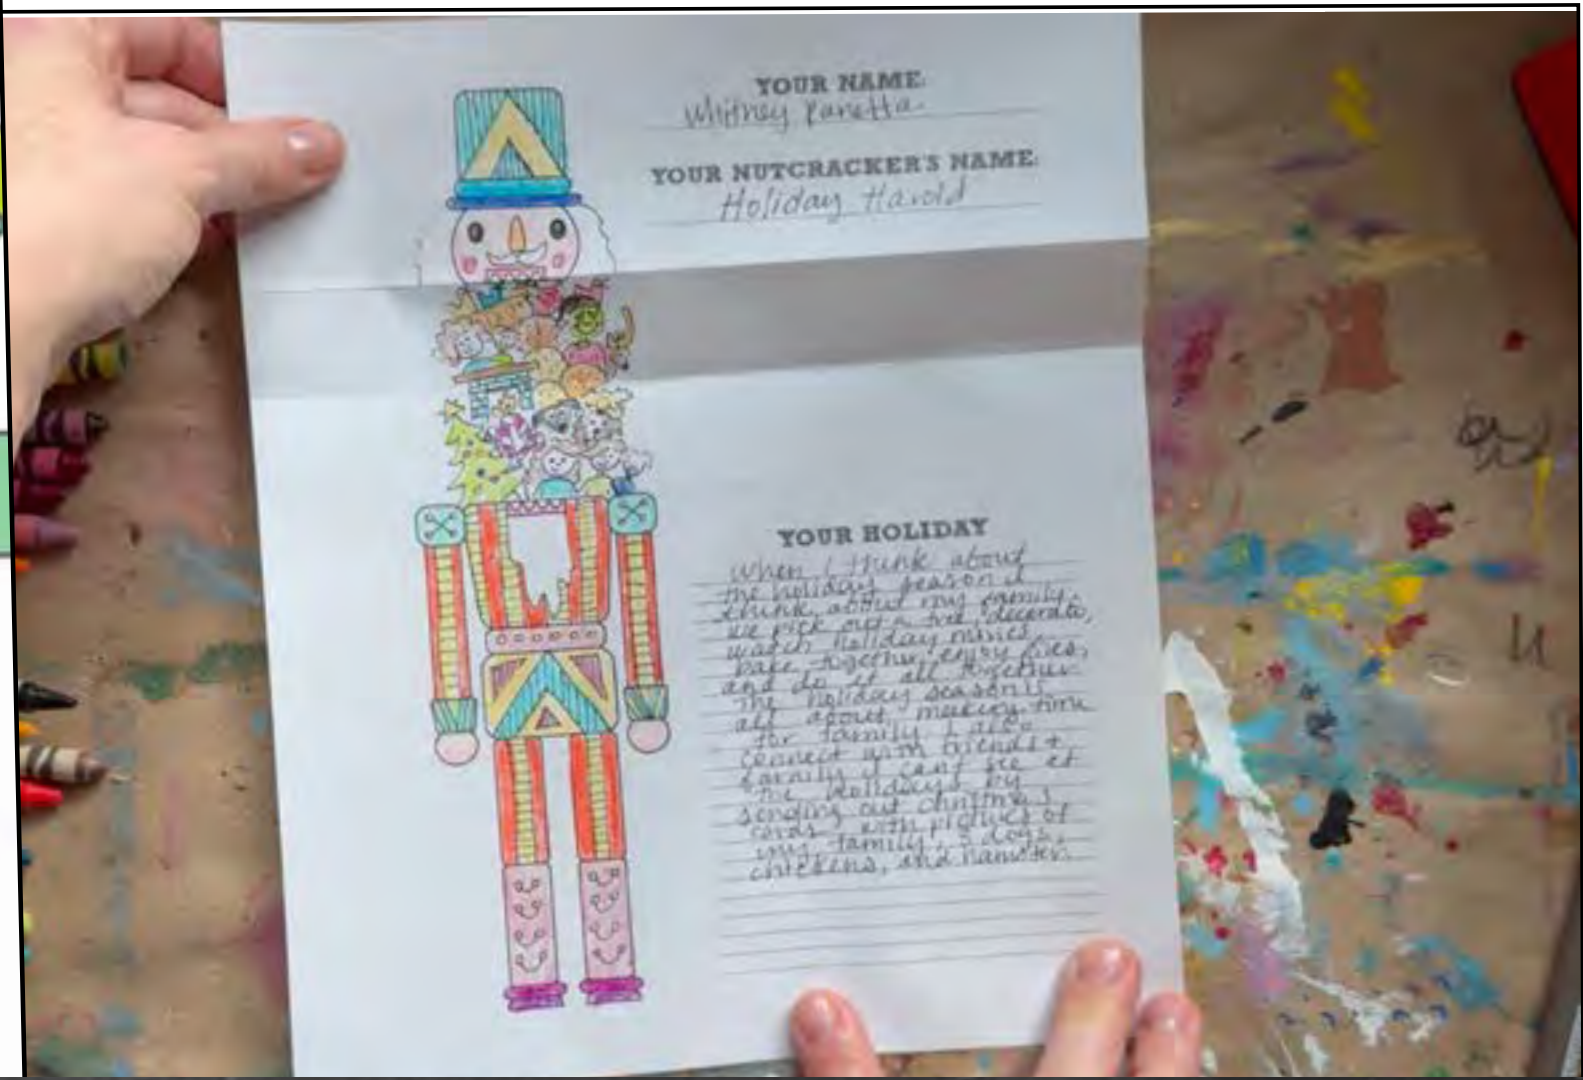 YOUR NAME:
Whitney Panetta
YOUR NUTCRACKER'S NAME:
Holiday Harold
YOUR HOLIDAY
When I think about
the holiday season I
think about my family.
We pick out a tree, decorate,
watch holiday movies,
bake together, enjoy lives,
and do it all together.
The holiday season is
all about making time
for family. I also
connect with friends &
family I cant see at
the holidays by
sending out christmas
cards with pictures of
my family, 3 dogs,
chickens, and hamster.